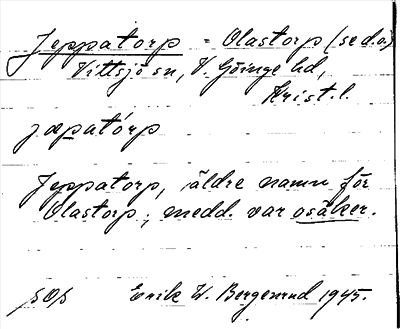 Jeppatorp = Olastorp (se d.o.)
Vittsjö sn, V. Göinge hd,
Krist. l.
jæpatórp
Jeppatorp, äldre namn för
Olastorp; medd. var osäker.
Erik W. Bergenrud 1945.